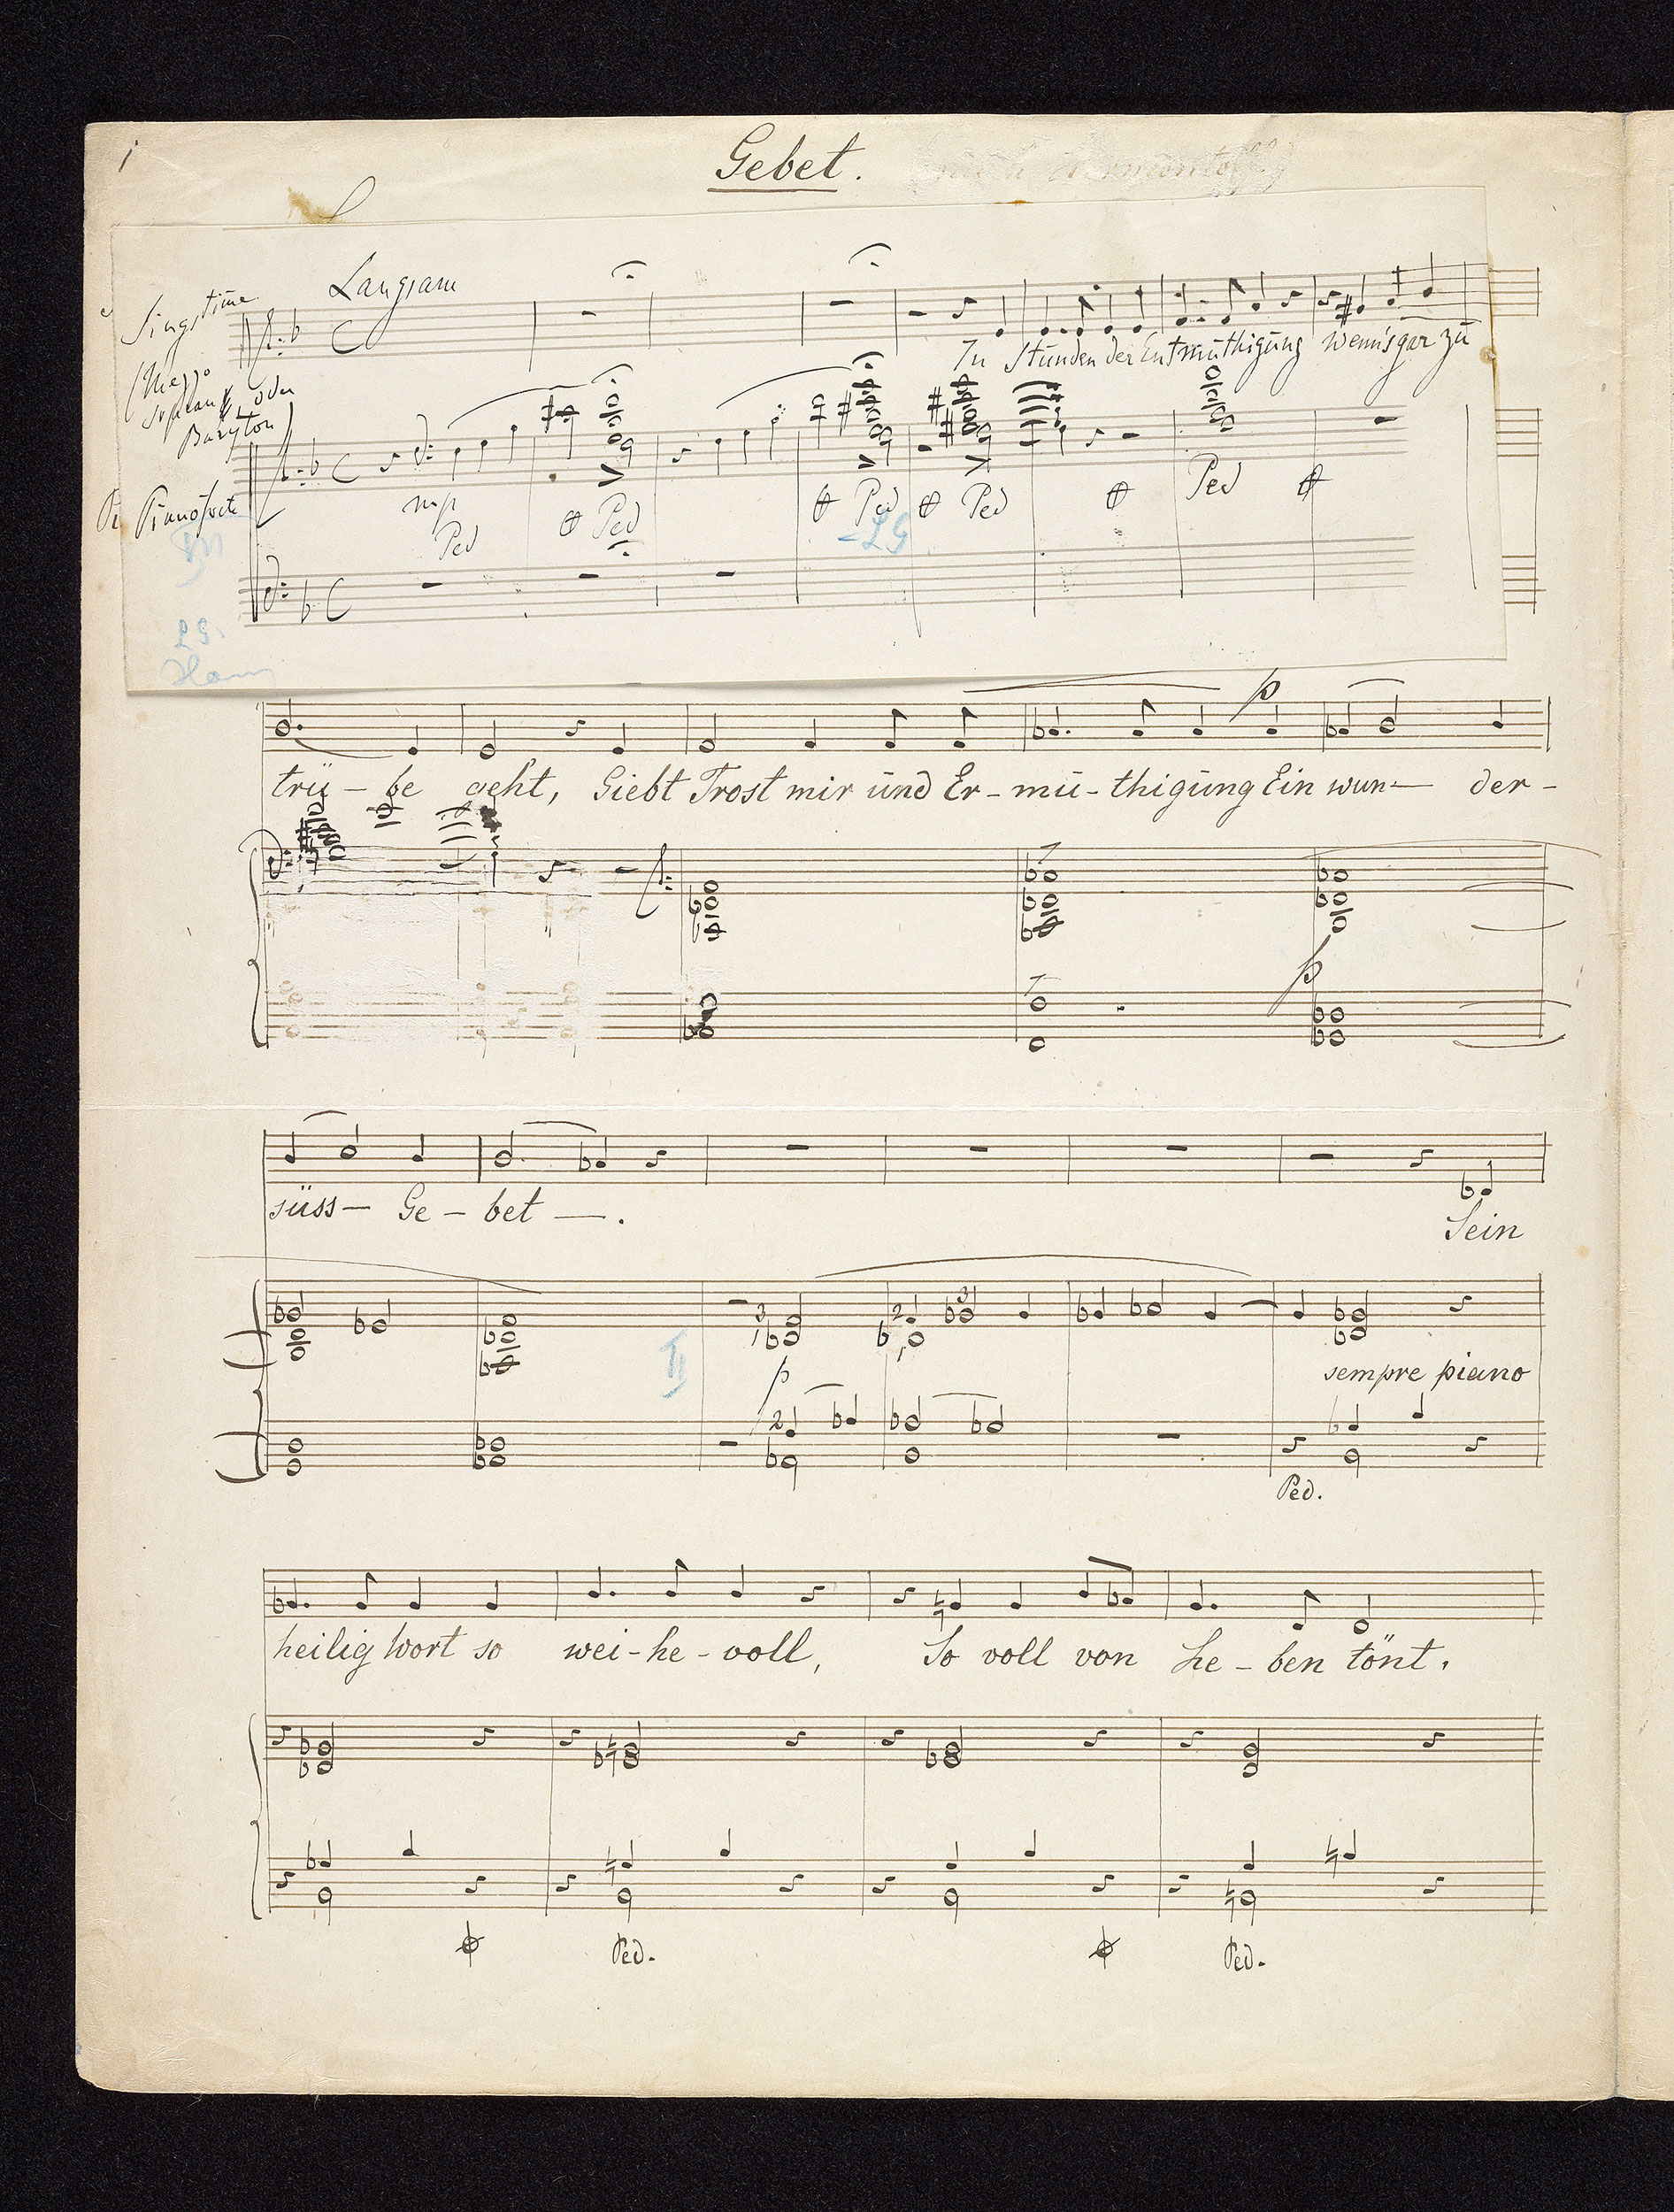 1
Gebet.
Langsam
Singstime
(Mezzo
sopran, oder
Baryton)
In Stunden der Entmüthigung wenn's gar zu
Pianoforte
mp
Ped
Ped
Ped
Ped
Ped
LG
LG
p
trü - be geht, Giebt Trost mir und Er - mü - thigung Ein wun - der -
p
süss - Ge - bet - .
Sein
3 1 2 1 3
II
p
sempre piano
2
Ped.
heilig Wort so wei - he - voll, So voll von Le - ben tönt.
Ped.
Ped.